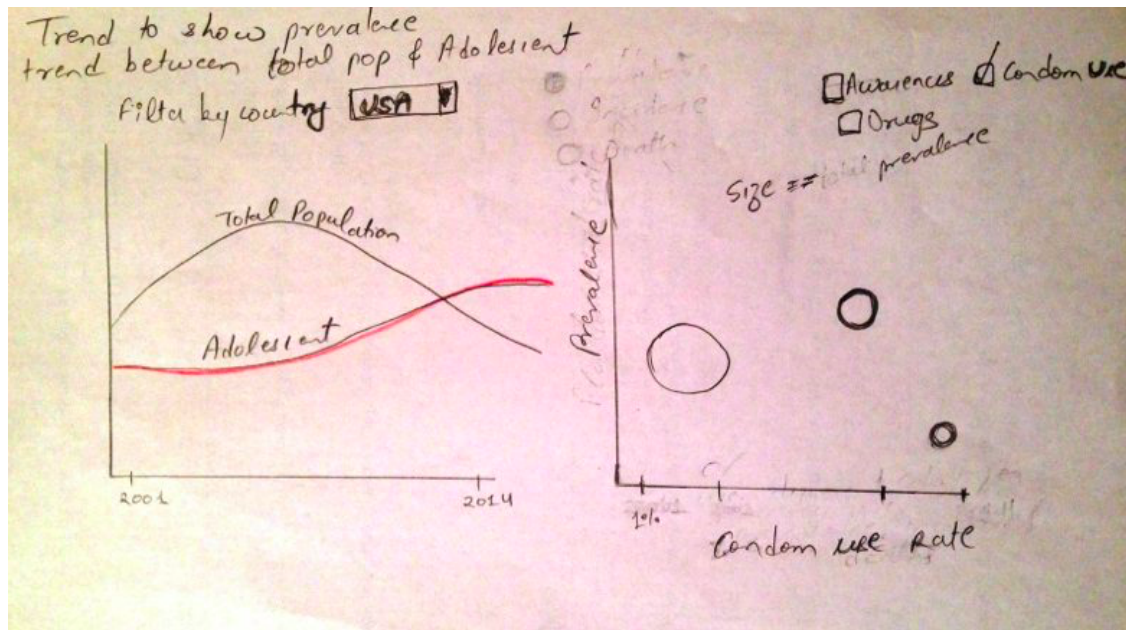 Trend to show prevalence
trend between total pop & Adolescent
Filter by country USA
Total Population
Adolescent
2001
2014
Awareness Condom use
Drugs
Size == total prevalence
Prevalence
1%
Condom use Rate